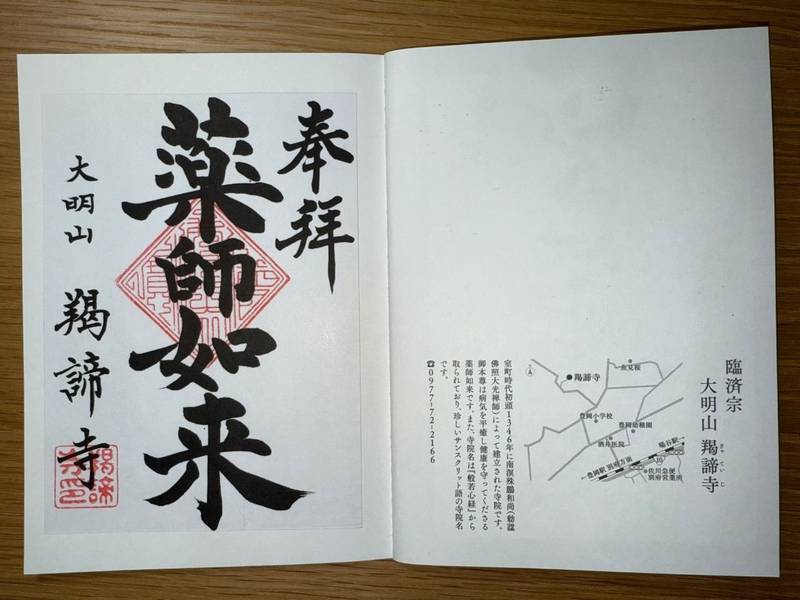 奉拝
薬師如来
大明山
羯諦寺
臨済宗
大明山 羯諦寺
ぎゃていじ
羯諦寺
魚見桜
豊岡小学校
豊岡幼稚園
酒井医院
暘谷駅
←豊岡駅 別府方面
佐川急便
別府営業所
室町時代初頭1346年に南溟殊鵬和尚(勅諡
佛照大光禅師)によって建立された寺院です。
御本尊は病気を平癒し健康を守ってくださる
薬師如来です。また、寺院名は『般若心経』から
取られており、珍しいサンスクリット語の寺院名
です。
☎0977-72-2166